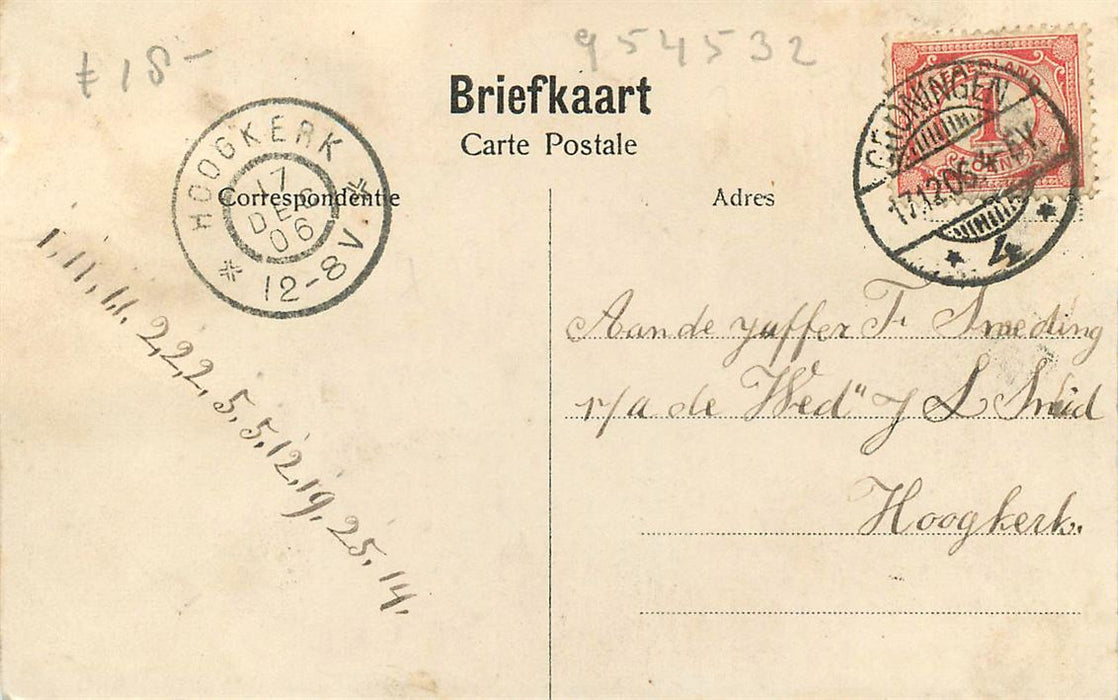 £ 18-
954532
Briefkaart
Carte Postale
NEDERLAND
1
CENT
GRONINGEN
17.12.06 4-5V
4
HOOGKERK
17
DEC
06
12-8V
Correspondentie
Adres
1, 11, 11, 2,22, 5, 5, 12, 19, 25, 14,
Aan de juffer F. Smeding
p/a de Wed" J L Smid
Hoogkerk.